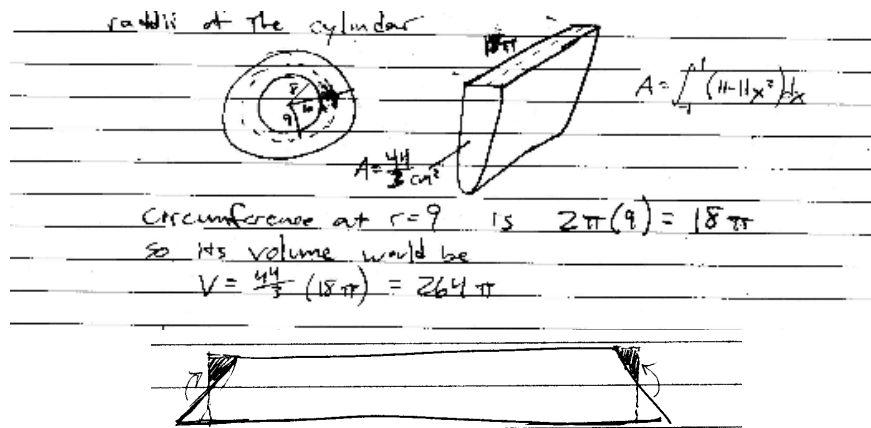 radii of the cylinder
18π
A = ∫₋₁¹ (11-11x²) dx
8
10
9
A = 44/3 cm²
Circumference at r=9 is 2π(9) = 18π
so its volume would be
V = 44/3 (18π) = 264π